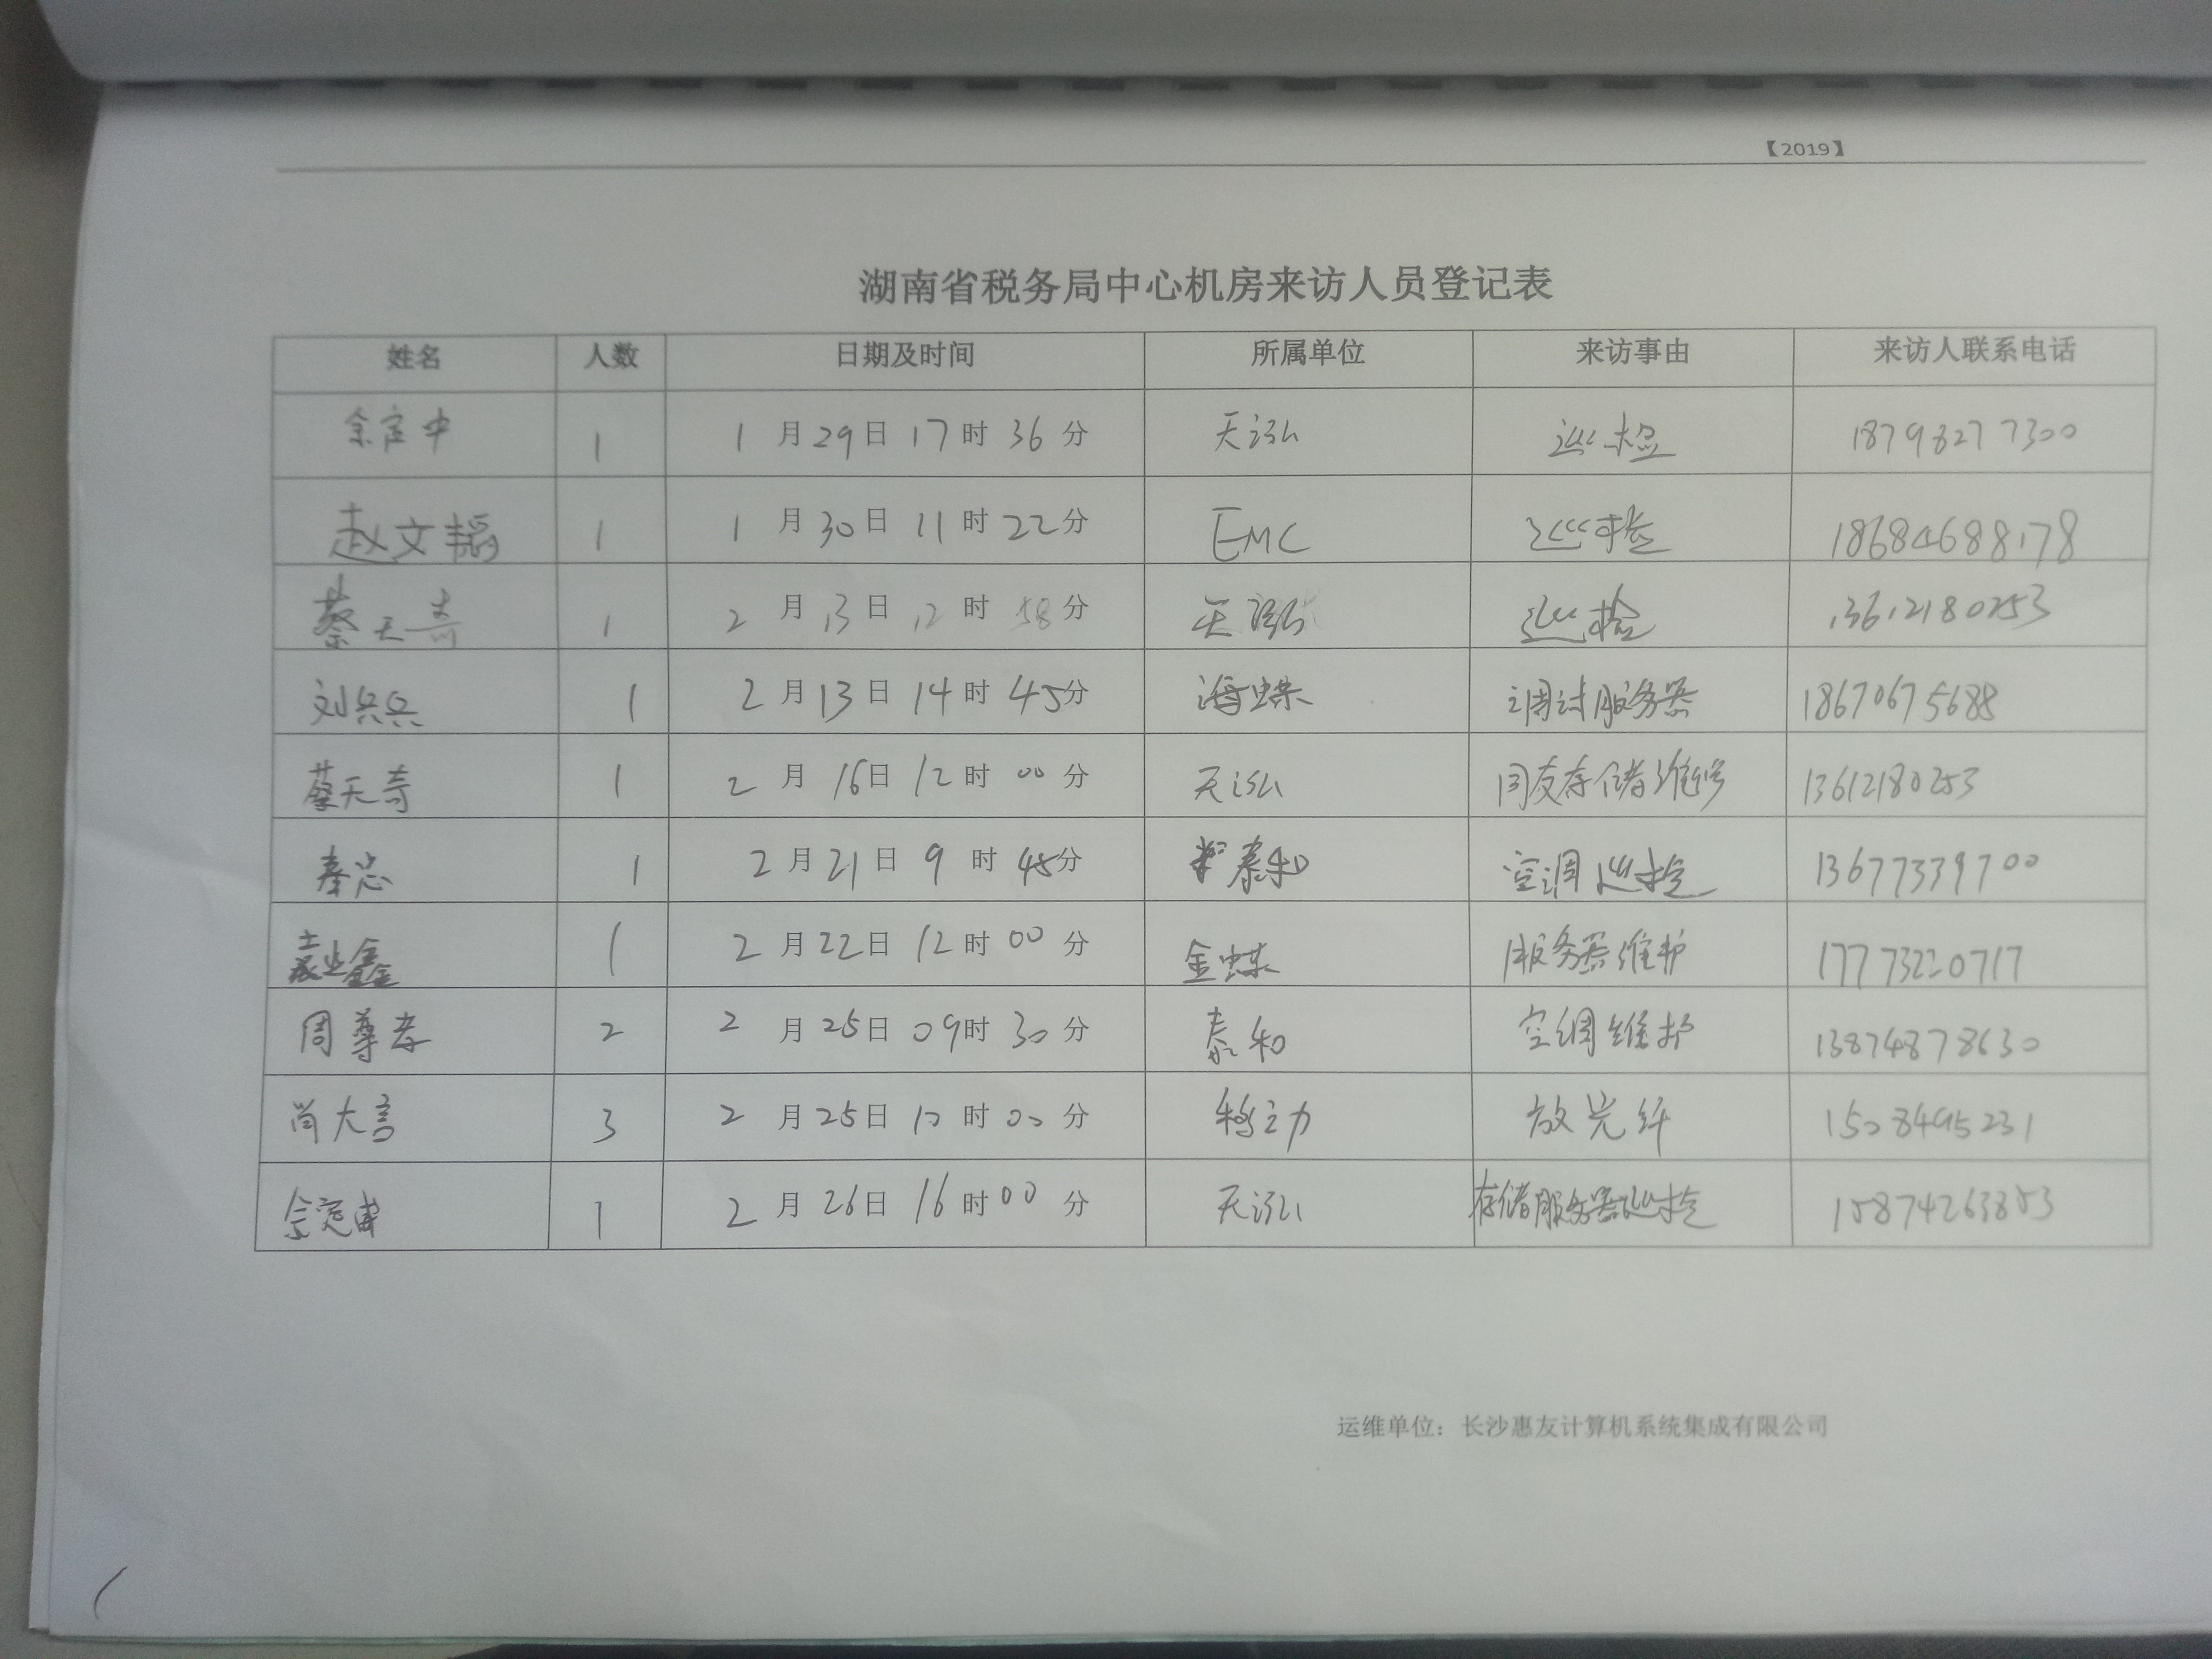 【2019】
湖南省税务局中心机房来访人员登记表
姓名 人数 日期及时间 所属单位 来访事由 来访人联系电话
1 1月29日17时36分 天泓 巡检 18798277300
赵文韬 1 1月30日11时22分 EMC 巡检 18684688178
蔡天奇 1 2月13日12时58分 天泓 巡检 13612180253
刘兵兵 1 2月13日14时45分 海蝶 调试服务器 18670675688
蔡天奇 1 2月16日12时00分 天泓 同友存储维修 13612180253
秦忠 1 2月21日9时45分 泰和 空调巡检 13677339700
袁业鑫 1 2月22日12时00分 金蝶 服务器维护 17773220717
周尊孝 2 2月25日09时30分 泰和 空调维护 13874878630
尚大言 3 2月25日10时00分 科立力 放光纤 15084495231
1 2月26日16时00分 天泓 存储服务器巡检 15874263853
运维单位：长沙惠友计算机系统集成有限公司